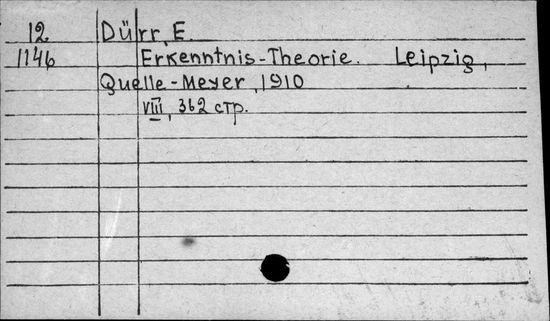 12 Dürr, E
1146 Erkenntnis-Theorie. Leipzig,
Quelle-Meyer, 1910
VIII, 362 стр.